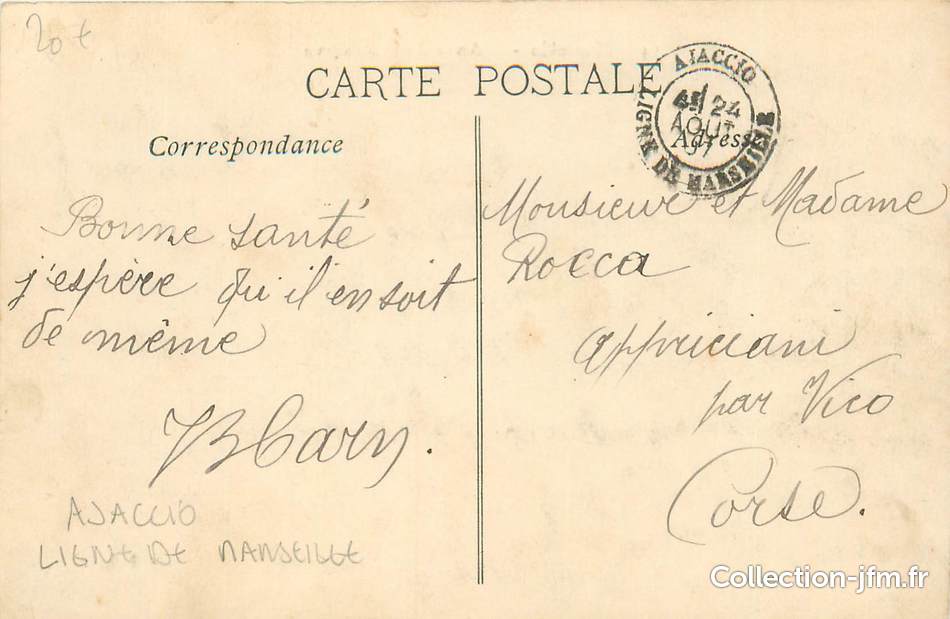 20 €
CARTE POSTALE
AJACCIO
24
AOUT
LIGNE DE MARSEILLE
Correspondance
Adresse
Bonne santé
j'espère qu'il en soit
de même
Monsieur et Madame
Rocca
Appriciani
par Vico
Corse.
AJACCIO
LIGNE DE MARSEILLE
Collection-jfm.fr